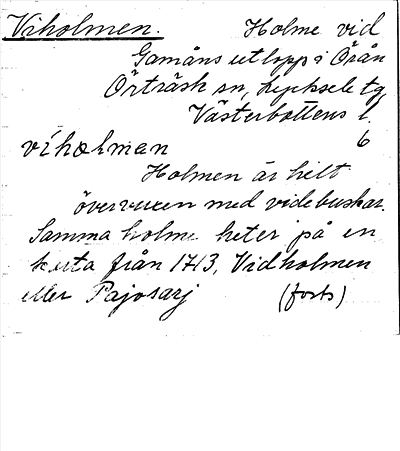 Viholmen. Holme vid
Gamåns utlopp i Örån
Örträsk sn, Lycksele tg
Västerbottens l.
víhɷlman 6
Holmen är helt
övervuxen med videbuskar.
Samma holme heter på en
karta från 1713, Vidholmen
eller Pajosarj (forts)